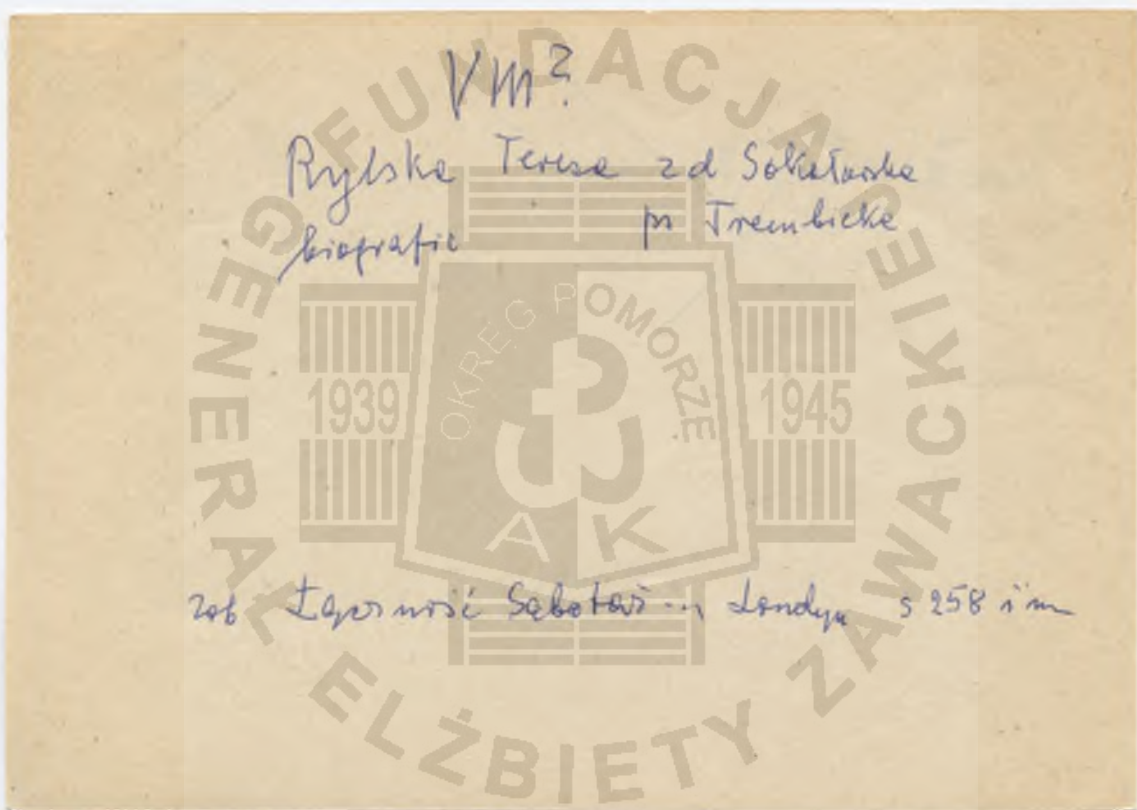 VM?
Rylska Teresa zd Sokołowska
biografia pr Trembicka
zob Łączność Sabotaż... Londyn s 258 i in
FUNDACJA
GENERAŁ ELŻBIETY ZAWACKIEJ
OKRĘG POMORZE
1939
1945
AK